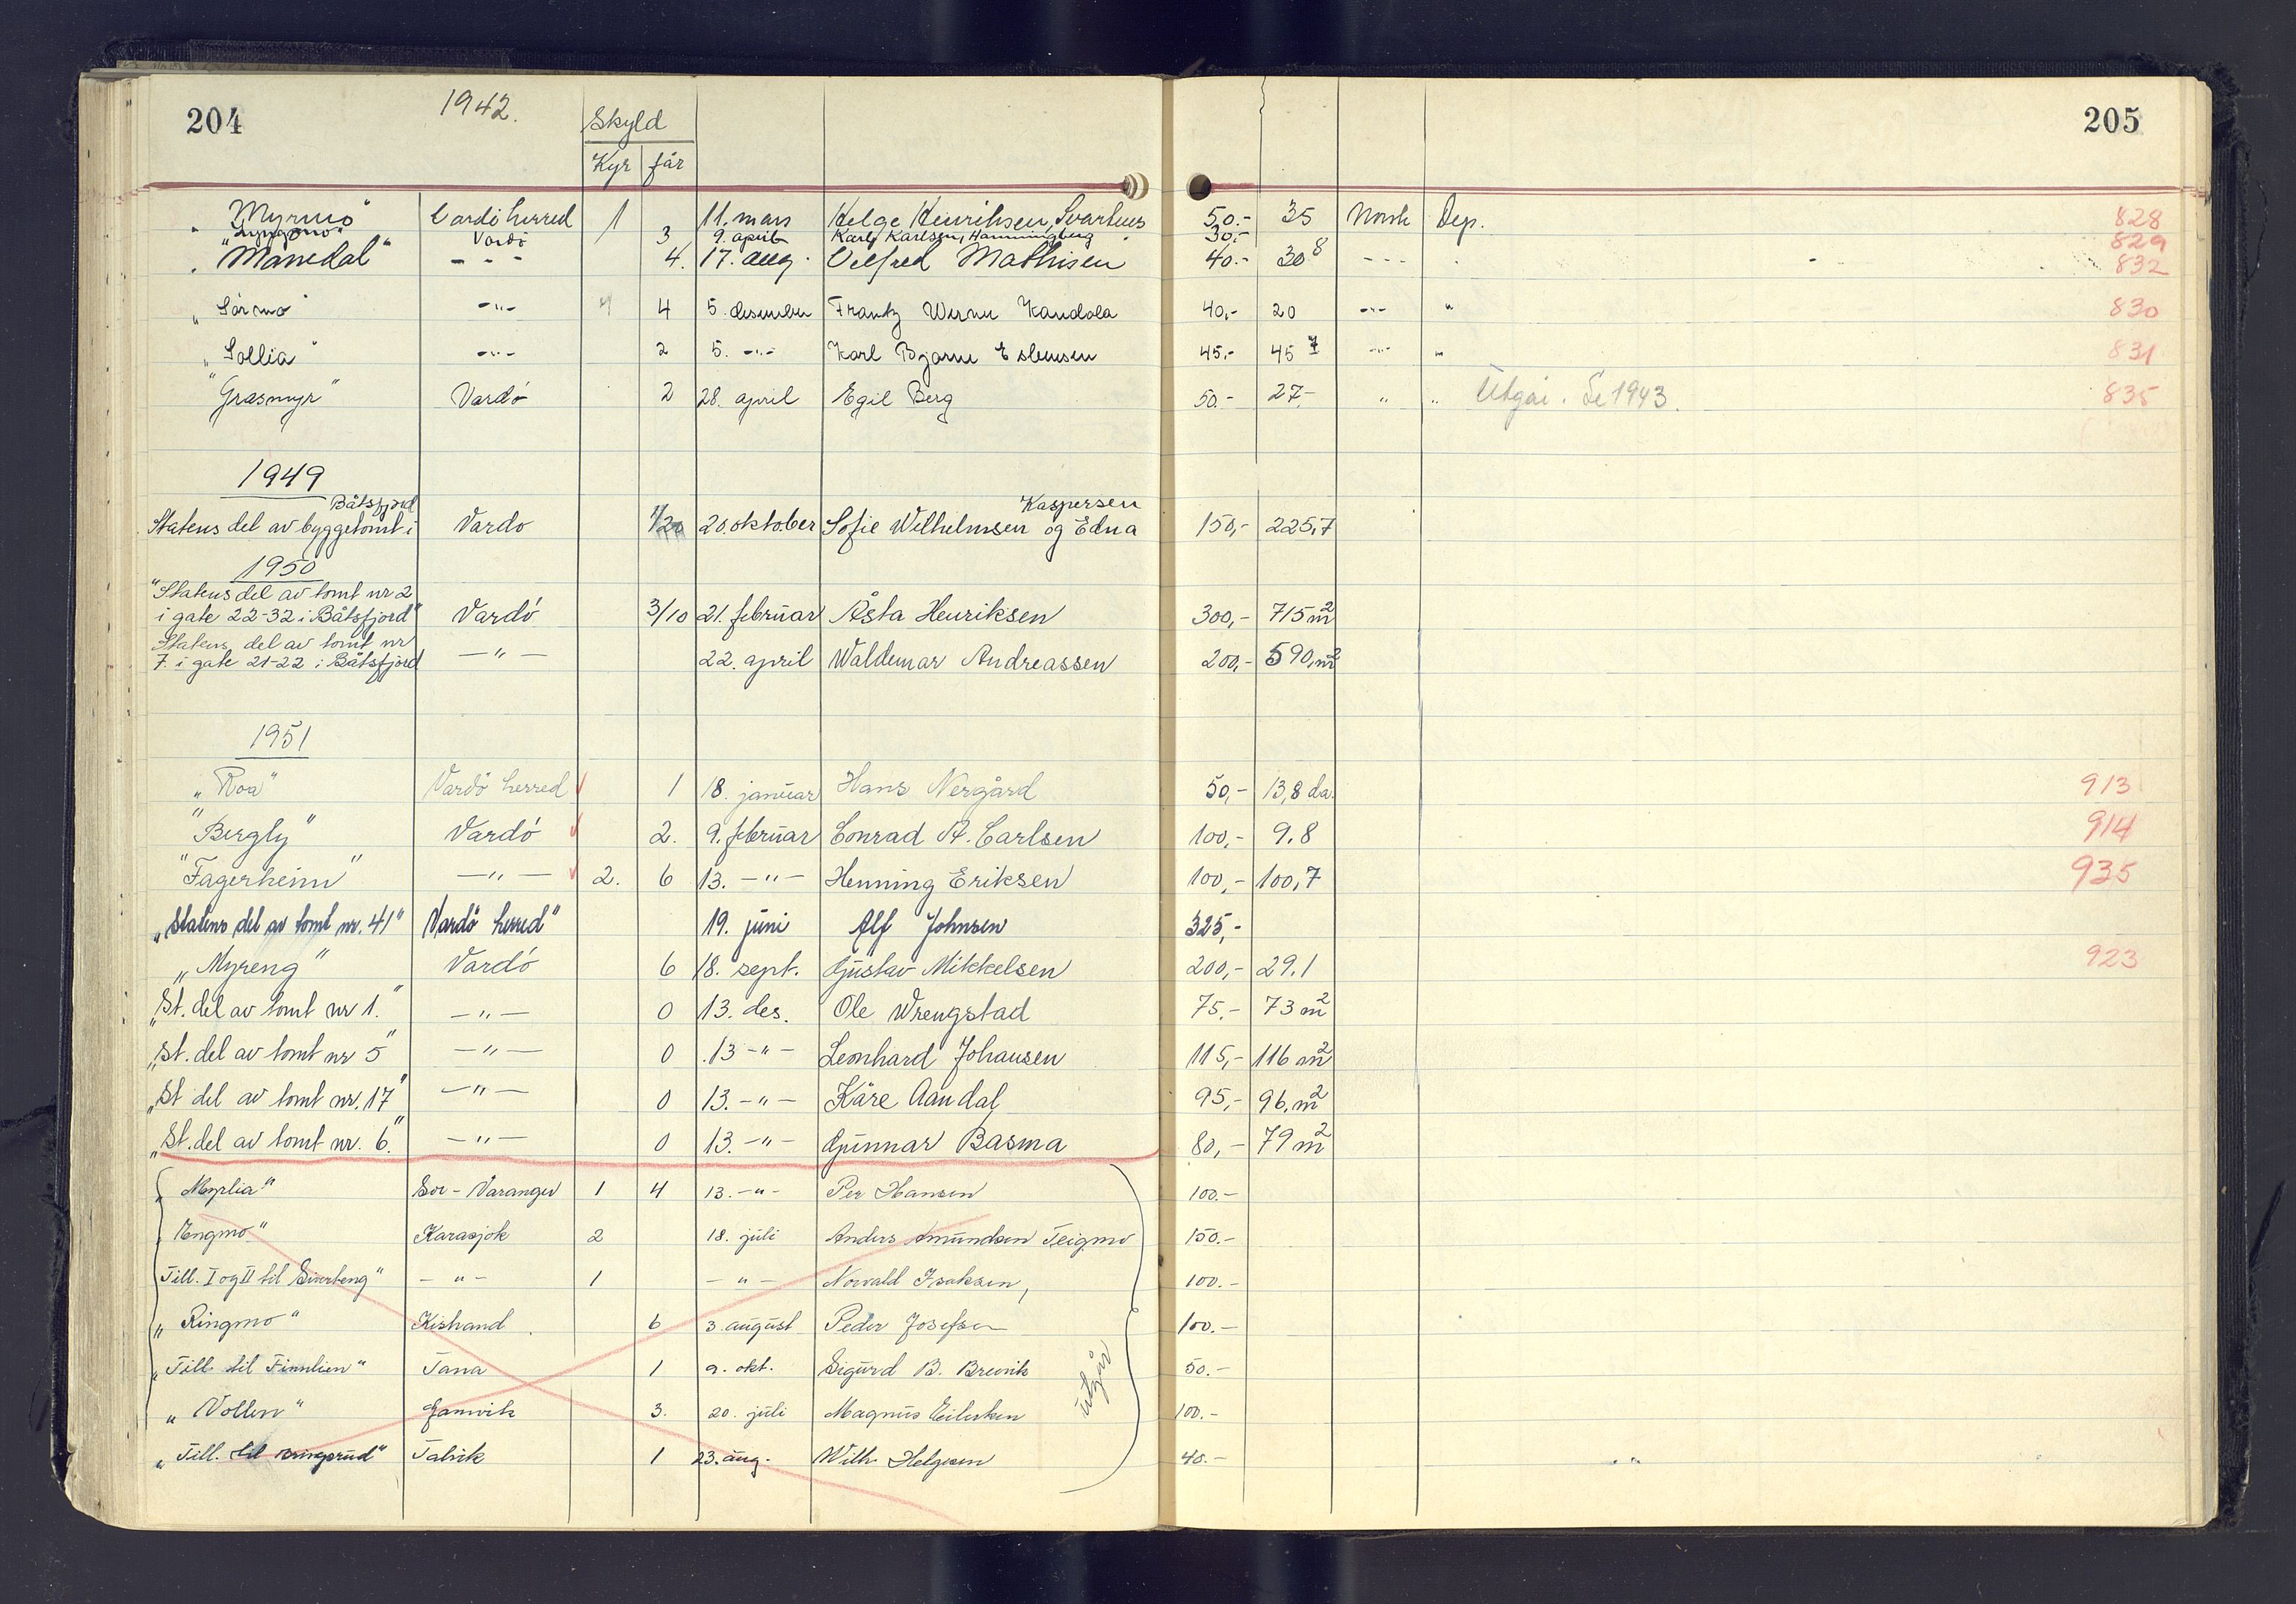 204 1942. 205
Skyld
Kyr får
"Myrmo" Vardö herred 1 11. mars Helge Henriksen, Svartnes 50.- 35 Norsk Dep. 828
"Lyngmo" Vardö 3 9. april Karl Karlsen, Hamningberg 30.- 829
"Manedal" - - - 4. 17. aug. Vilfred Mathisen 40.- 30 8 - - - 832
"Sörmo" -"- 4 5. desember Frantz Werner Kandola 40,- 20 -"- " 830
"Sollia" -"- 2 5. -"- Karl Bjarne Eslensen 45,- 45 7 -"- " 831
"Grasmyr" Vardö 2 28. april Egil Berg 50.- 27.- " " Utgår. Se 1943. 835
1949
Statens del av byggetomt i Båtsfjord Vardö 1/20 20. oktober Sofie Wilhelmsen og Edna Kaspersen 150,- 225,7
1950
"Statens del av tomt nr 2
i gate 22-32 i Båtsfjord" Vardö 3/10 21. februar Åsta Henriksen 300,- 715 m2
Statens del av tomt nr
7 i gate 21-22 i Båtsfjord -"- 22. april Waldemar Andreassen 200,- 590, m2
1951
"Roa" Vardö herred 1 18. januar Hans Nergård 50,- 13,8 da. 913
"Bergly" Vardö 2. 9. februar Conrad A. Carlsen 100,- 9.8 914
"Fagerheim" -"- 2. 6 13. -"- Henning Eriksen 100,- 100,7 935
"Statens del av tomt nr. 41" Vardö herred" 19. juni Alf Johnsen 325,-
"Myreng" Vardö 6 18. sept. Gustav Mikkelsen 200,- 29.1 923
"St. del av tomt nr 1." -"- 0 13. des. Ole Wrengstad 75,- 73 m2
"St. del av tomt nr 5" -"- 0 13 -"- Leonhard Johansen 115,- 116 m2
"St del av tomt nr. 17" -"- 0 13. -"- Kåre Aandal 95,- 96, m2
"St. del av tomt nr. 6." -"- 0 13. -"- Gunnar Basma 80,- 79 m2
"Myrlia" Sör-Varanger 1 4 13. -"- Per Hansen 100.-
"Engmo" Karasjok 2 18. juli Anders Amundsen Teigmo 150.-
Till. I og II til Svartseng" -"- 1 -"- Norvald Isaksen, 100.-
"Ringmo" Kistrand 6 3. august Peder Josefsen 100.-
"Till. til Finnlien" Tana 1 9. okt. Sigurd B. Brevik 50.-
"Vollen" Gamvik 3. 20. juli Magnus Eilertsen 100.-
"Till. til" Talvik 1 23. aug. Wilh. Helgesen 40.-
utgår